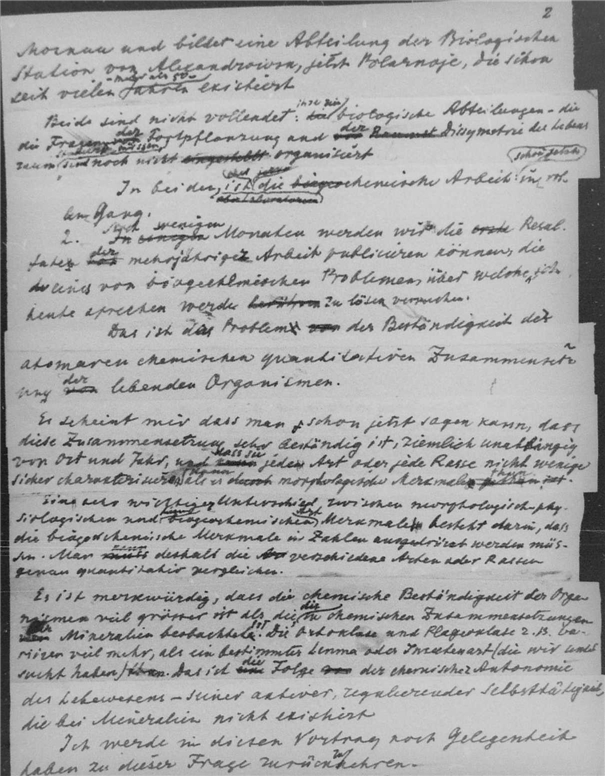 2
Mornau und bildet eine Abteilung der Biologischen
Station von Alexandrowsk, jetzt Polarnoje, die schon
mehr als 50
seit vielen Jahren existiert
Beide sind nicht vollendet: biologische Abteilungen - die
die Fragen der Fortpflanzung und der Dissymetrie des Lebens
raum sind noch nicht eingestellt organisiert
In beiden ist die biogeochemische Arbeit schon jetzt in vol
lem Gang.
2. In wenigen Monaten werden wir die erste Resul-
tate der mehrjährigen Arbeit publicieren können, die
eines von biogeochemischen Problemen, über welche ich
heute sprechen werde berühren zu lösen versuchen.
Das ist das Problem von der Beständigkeit der
atomaren chemischen quantitativen Zusammensetz
ung der lebenden Organismen.
Es scheint mir dass man schon jetzt sagen kann, dass
diese Zusammensetzung sehr beständig ist, ziemlich unabhängig
von Ort und Jahr, und dass sie jede Art oder jede Rasse nicht wenige
sicher charakterisiert als es morphologische Merkmale
Eine sehr wichtige Unterschied zwischen morphologisch-phy-
siologischen und biogeochemischen Merkmalen besteht darin, dass
die biogeochemische Merkmale in Zahlen ausgedrückt werden müs-
sen. Man deshalb die verschiedene Arten oder Rassen
genau quantitativ vergleichen.
Es ist merkwürdig, dass die chemische Beständigkeit der Orga-
nismen viel grösser ist als die in chemischen Zusammensetzungen
der Mineralien beobachtete ist. Die Ortoklase und Plagioklase z. B. va-
riieren viel mehr, als ein bestimmter Lemna oder Insektenart (die wir unter
sucht haben) Das ist die Folge von der chemischer Autonomie
des Lebewesens – seiner activer, regulierender Selbsttätigkeit,
die bei Mineralien nicht existirt
Ich werde in diesen Vortrag noch Gelegenheit
haben zu dieser Frage zurückkehren.